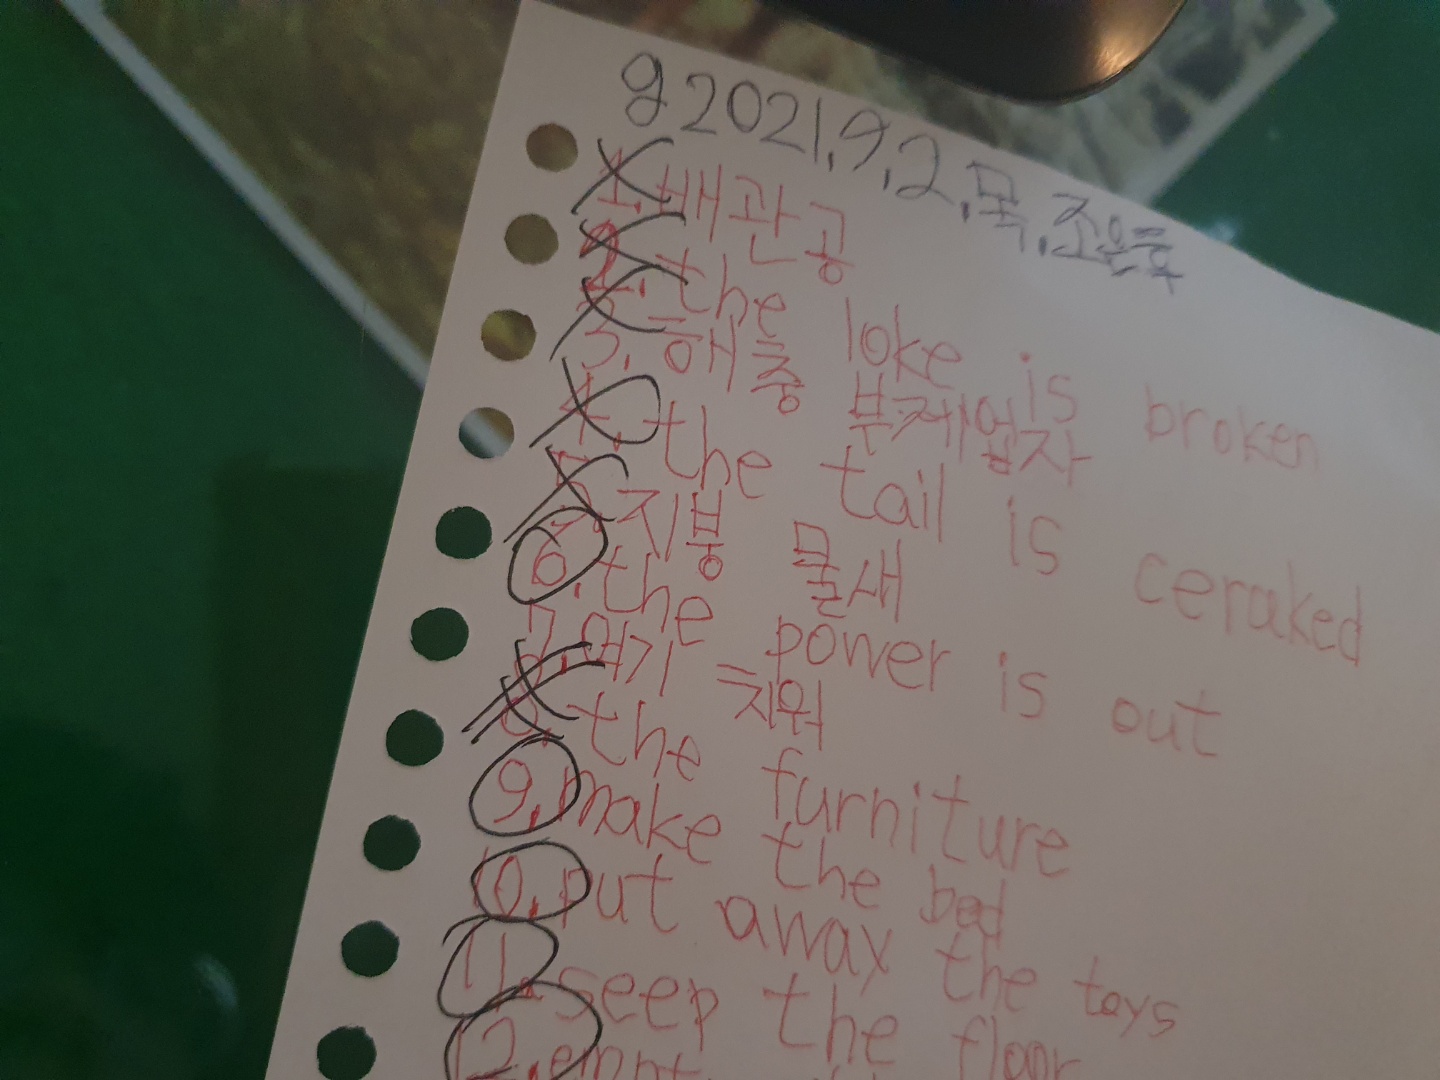 g 2021.9.2.목.조은특
1. 배관공
2. the loke is broken
3. 해충 부제업자
4. the tail is ceraked
5. 지붕 물새
6. the power is out
7. 여기 치워
8. the furniture
9. make the bed
10. put away the toys
11. seep the floor
12.